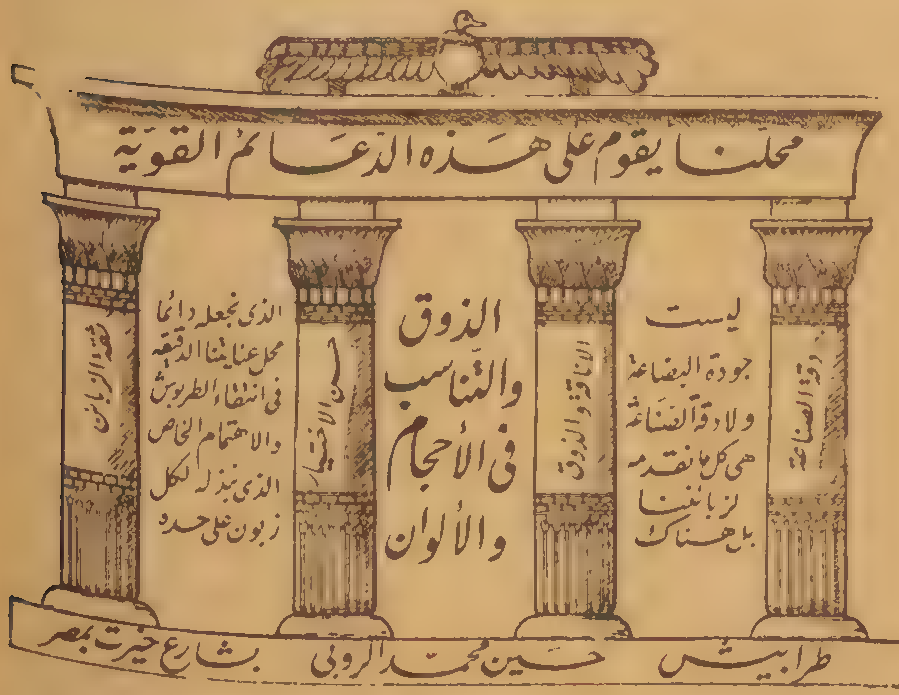 محلّنا يقوم على هذه الدّعائم القويّة
دقة الصناعة
ليست
جودة البضاعة
ولا دقة الصّناعة
هى كل ما نقدمه
لزبائننا
بل هناك
الأناقة والذوق
الذوق
والتّناسب
فى الأحجام
والألوان
حسن الاختيار
الذى نجعله دائما
محل عنايتنا الدقيقه
فى انتقاء الطربوش
والاهتمام الخاص
الذى نبذله لكل
زبون على حده
ثقة الزبائن
طرابيش حسين محمّد الروبى بشارع خيرت بمصر